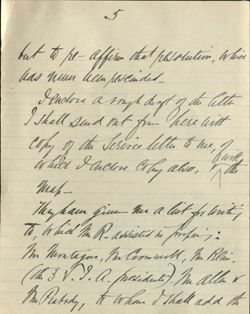 5
but to re-affirm that resolution, which
has never been rescinded.
I enclose a rough draft of the letter
I shall send out from here with
copy of the Service letter to me, of
which I enclose copy also, with the
map -
They have given me a list for writing
to, which Mr R. assisted in preparing:
Mr Montague, Mr Cornwall, Mr Blair,
(the 3 V.I.A. presidents), Mr Allen &
Mr Peabody, to whom I shall add the